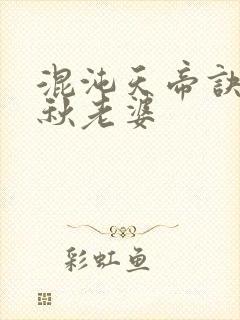 混沌天帝訣
秋老婆
彩虹鱼